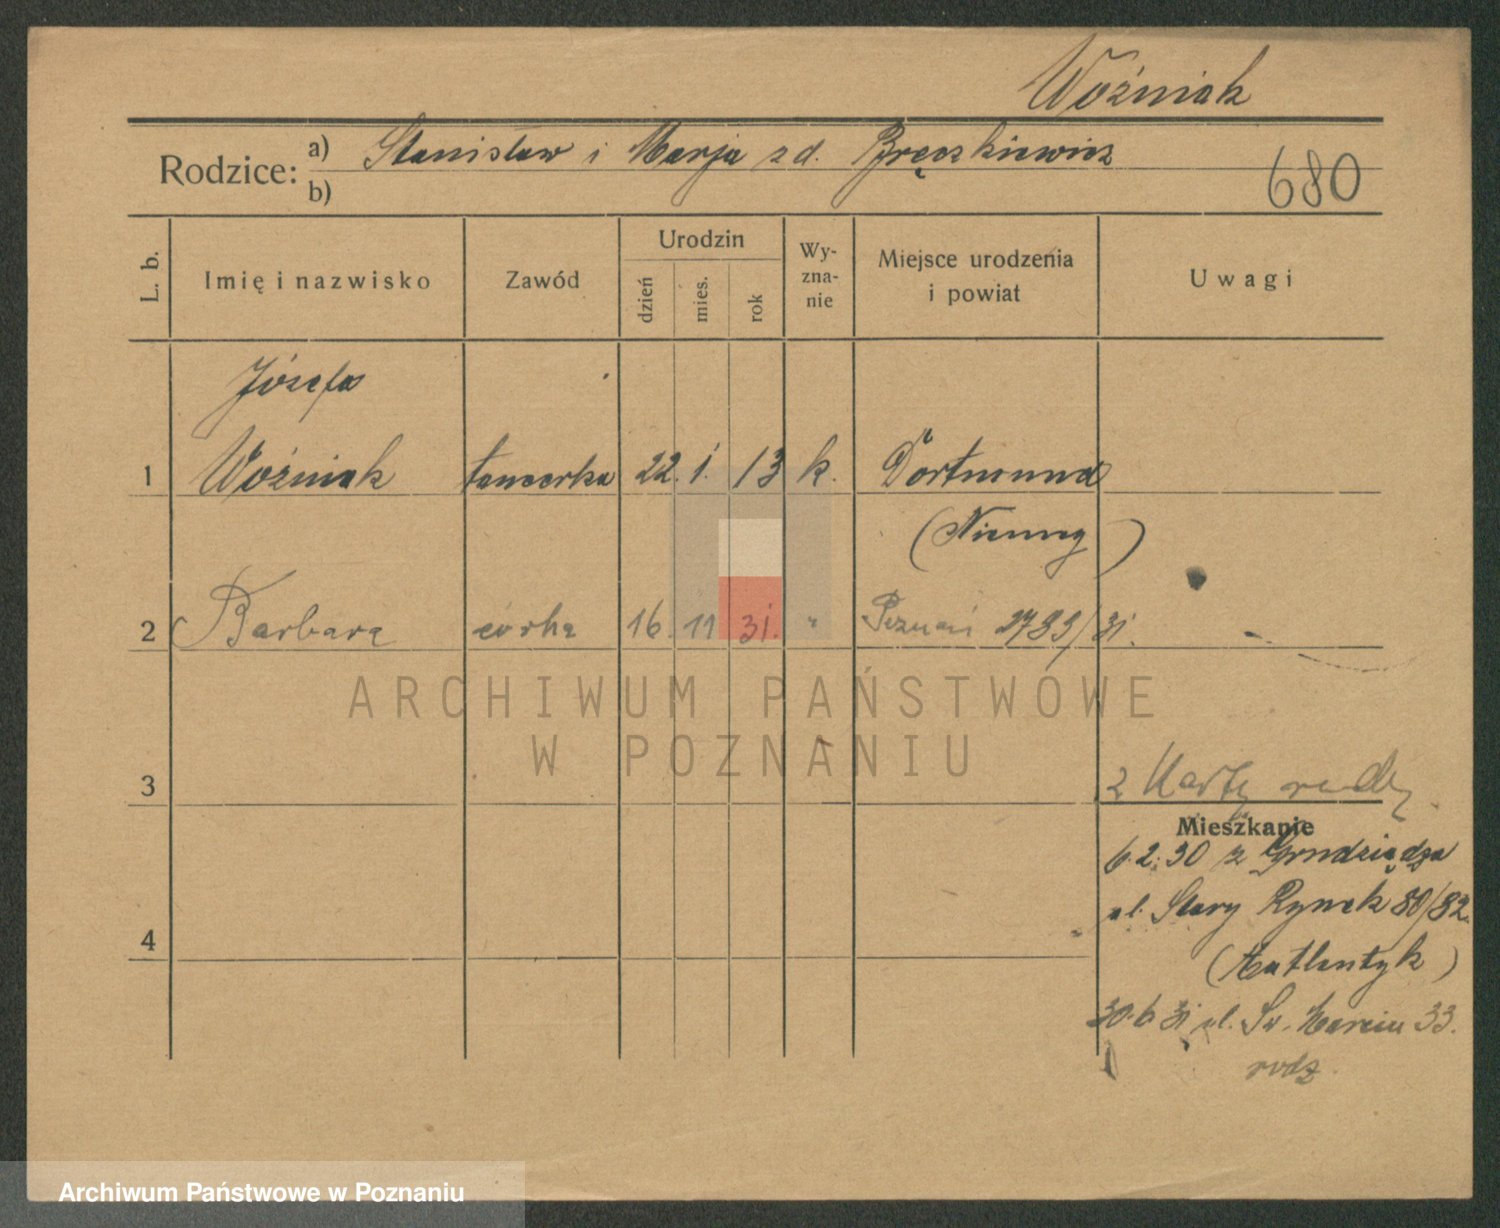 Woźniak
Rodzice: a) Stanisław i Marja z d. Bręczkiewicz
b)
680
L. b. Imię i nazwisko Zawód Urodzin dzień mies. rok Wyznanie Miejsce urodzenia i powiat Uwagi
Józefa
1 Woźniak tancerka 22. 1. 13 k. Dortmund
(Niemcy)
2 Barbara córka 16. 11 31. " Poznań 2789/31.
ARCHIWUM PAŃSTWOWE
W POZNANIU
3 2 Karty
Mieszkanie
6.2.30 z Grudziądza
ul. Stary Rynek 80/82.
4 (Aatlantyk)
30.6 31 ul. Św. Marcin 33.
rodz.
Archiwum Państwowe w Poznaniu